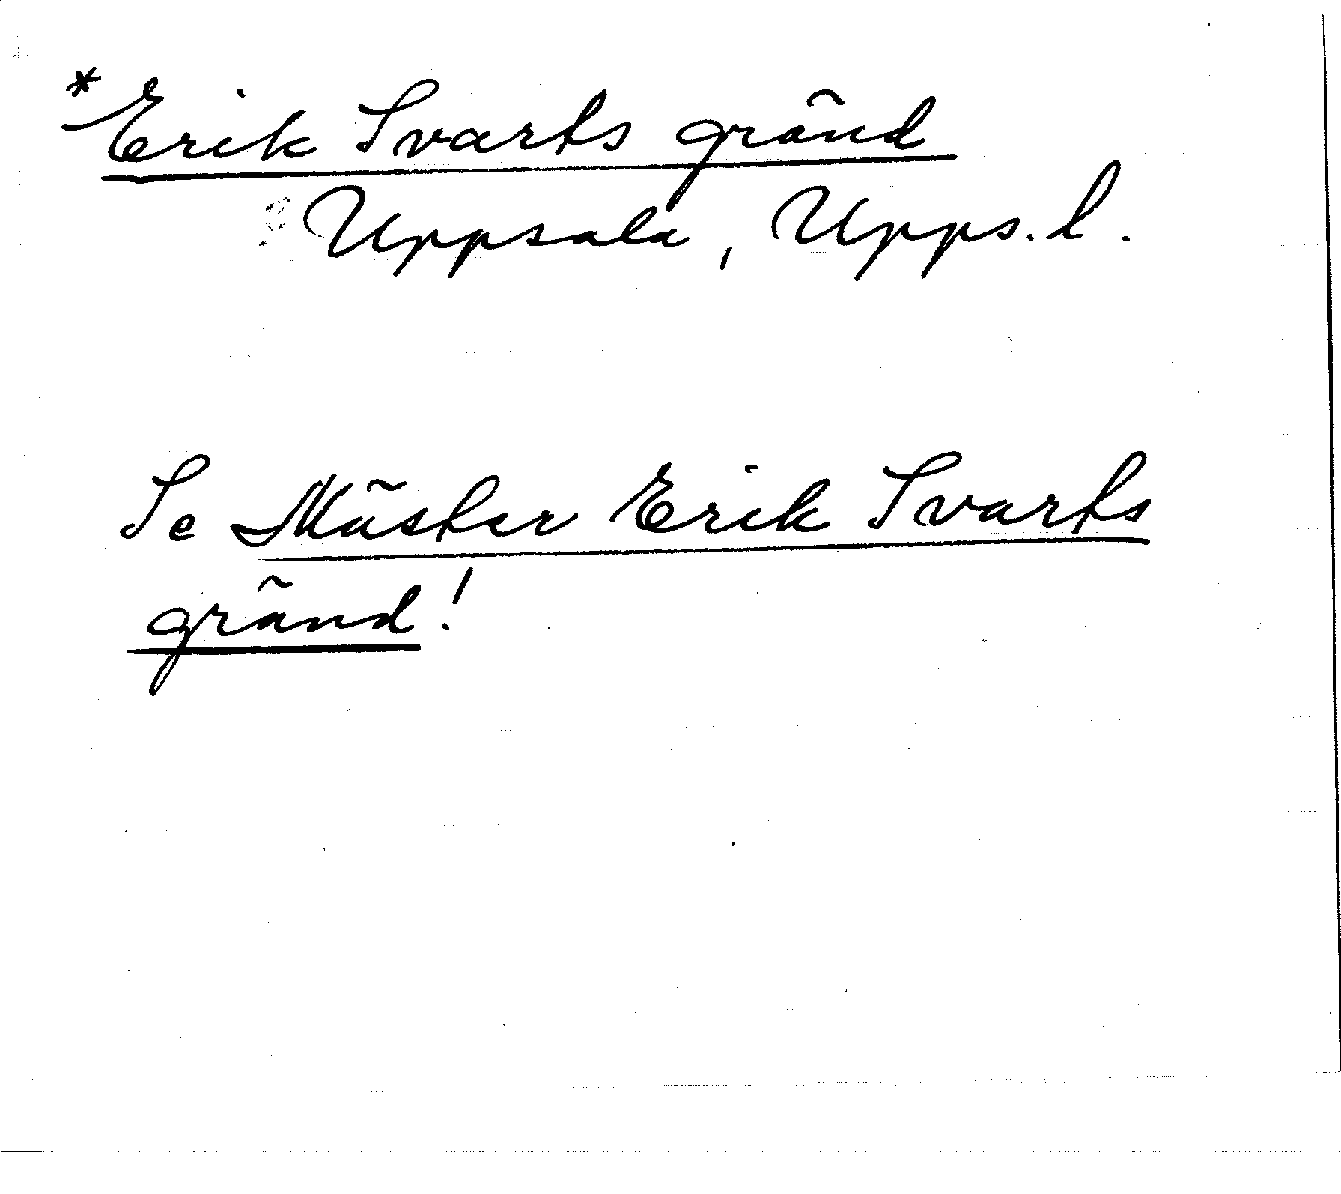 *Erik Svarts gränd
Uppsala, Upps. l.
Se Mäster Erik Svarts
gränd!